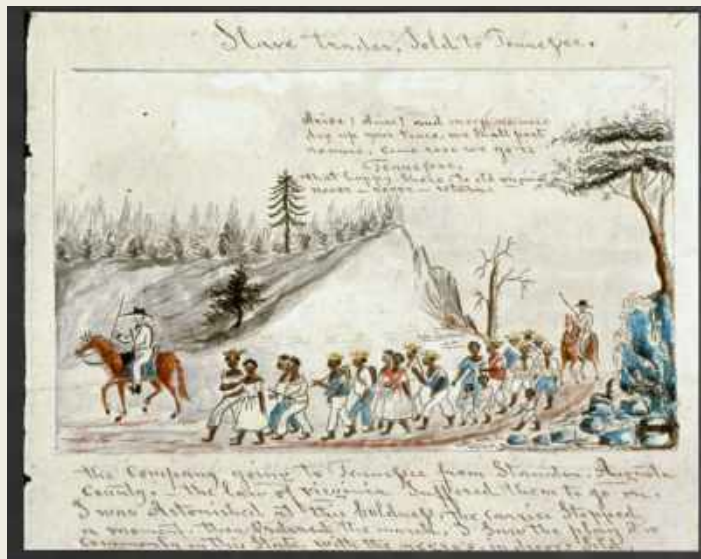 Slave trader, Sold to Tennessee.
Arise! Arise! and weep no more
dry up your tears, we shall part
no more, come rose we go to
Tennessee,
that happy shore, to old virginia
never - never - return.
the Company going to Tennessee from Staunton, Augusta
County, - the law of virginia Suffered them to go on.
I was Astonished at this boldness, the carrier Stopped
a moment, then Ordered the march, I Saw the play it is
commonly in this State, with the negro's in droves Sold.